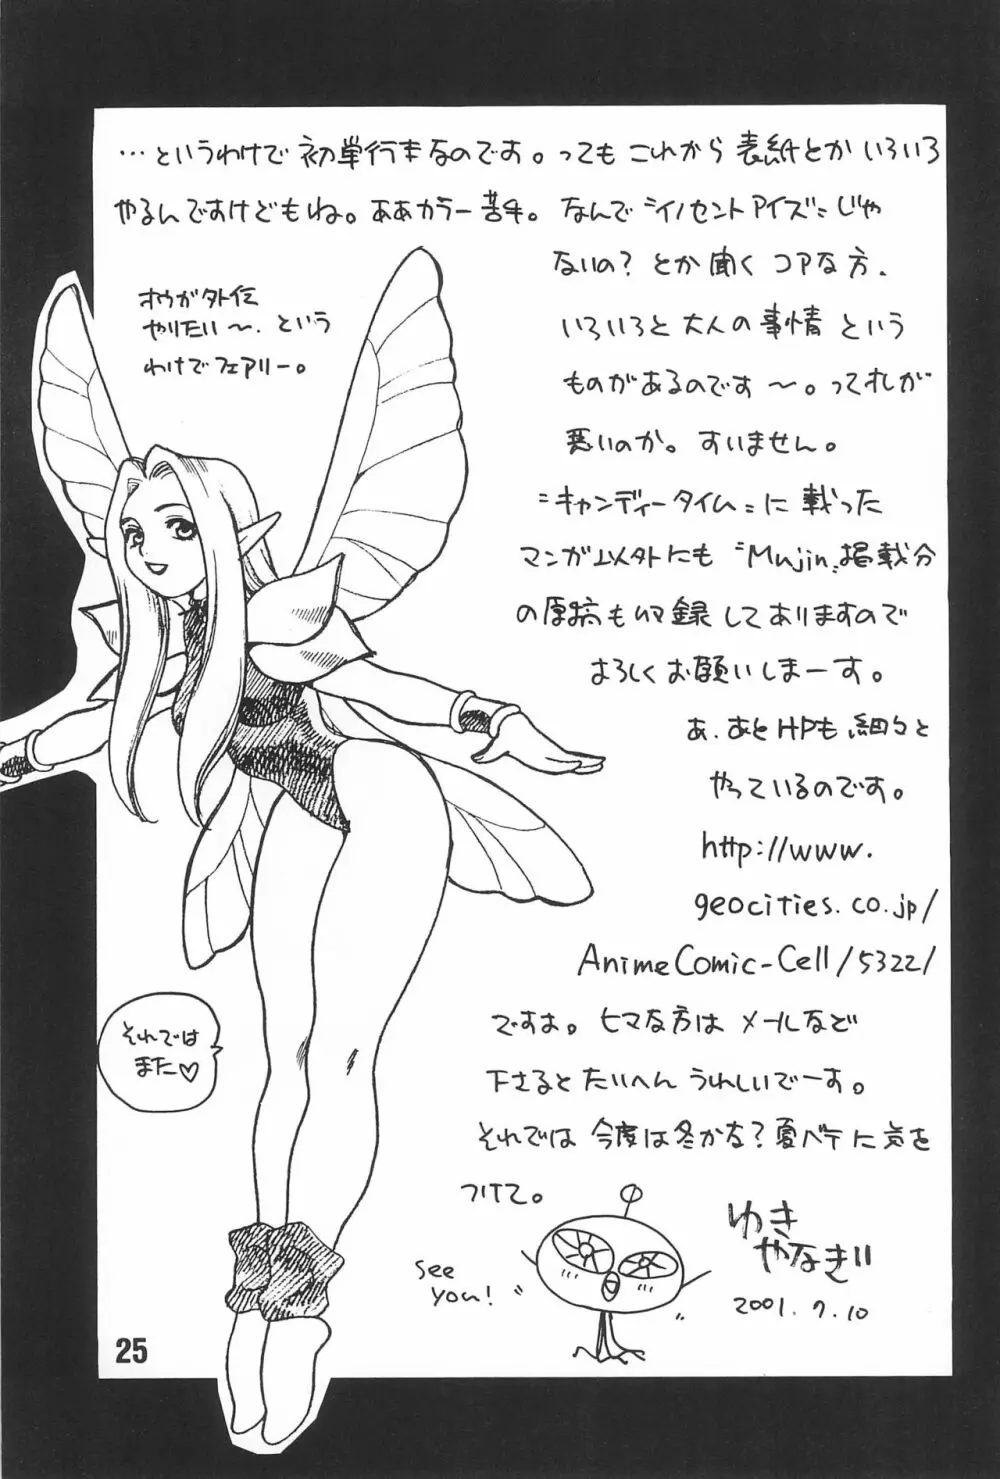 …というわけで初単行本なのです。ってもこれから表紙とかいろいろ
やるんですけどもね。ああカラー苦手。なんで〝イノセントアイズ〟じゃ
ないの?とか聞くコアな方、
いろいろと大人の事情という
ものがあるのです～。ってオレが
悪いのか。すいません。
〝キャンディータイム〟に載った
マンガ以外にも〝Mujin〟掲載分
の原稿も収録してありますので
よろしくお願いしまーす。
あ、あとHPも細々と
やっているのです。
http://www.
geocities.co.jp/
AnimeComic-Cell/5322/
ですよ。ヒマな方はメールなど
下さるとたいへんうれしいでーす。
それでは今度は冬かな?夏バテに気を
つけて。
ホウガ外伝
やりたい～。という
わけでフェアリー。
それでは
また♡
see
you!
ゆき
やなぎ!!
2001.7.10
25